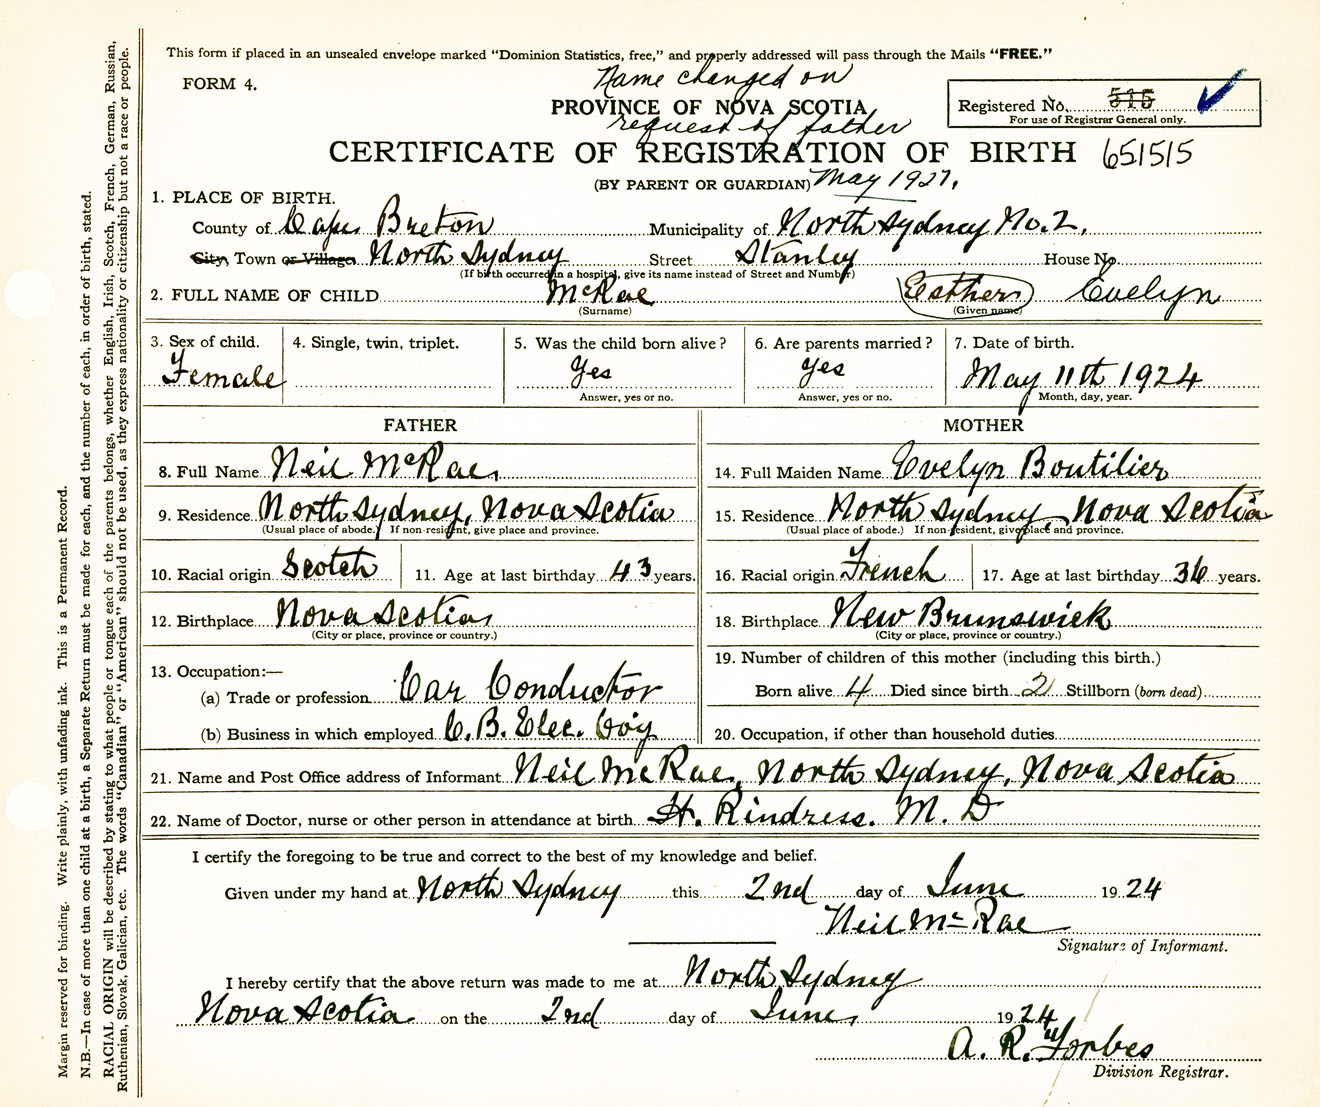 This form if placed in an unsealed envelope marked “Dominion Statistics, free,” and properly addressed will pass through the Mails “FREE.”
FORM 4.
Name changed on
PROVINCE OF NOVA SCOTIA
request of father
Registered No. 515
For use of Registrar General only.
CERTIFICATE OF REGISTRATION OF BIRTH 651515
(BY PARENT OR GUARDIAN) May 1927.
1. PLACE OF BIRTH.
County of Cape Breton Municipality of North Sydney No. 2.
City, Town or Village North Sydney Street Stanley House No.
(If birth occurred in a hospital, give its name instead of Street and Number)
2. FULL NAME OF CHILD McRae Esther Evelyn
(Surname) (Given name)
3. Sex of child. 4. Single, twin, triplet. 5. Was the child born alive? 6. Are parents married? 7. Date of birth.
Female Yes Yes May 11th 1924
Answer, yes or no. Answer, yes or no. Month, day, year.
FATHER
8. Full Name Neil McRae.
9. Residence North Sydney, Nova Scotia
(Usual place of abode.) If non-resident, give place and province.
10. Racial origin Scotch 11. Age at last birthday 43 years.
12. Birthplace Nova Scotia
(City or place, province or country.)
13. Occupation:—
(a) Trade or profession Car Conductor
(b) Business in which employed C. B. Elec. Co'y
MOTHER
14. Full Maiden Name Evelyn Boutilier
15. Residence North Sydney, Nova Scotia
(Usual place of abode.) If non-resident, give place and province.
16. Racial origin French 17. Age at last birthday 36 years.
18. Birthplace New Brunswick
(City or place, province or country.)
19. Number of children of this mother (including this birth.)
Born alive 4 Died since birth 2 Stillborn (born dead)
20. Occupation, if other than household duties
21. Name and Post Office address of Informant Neil McRae, North Sydney, Nova Scotia
22. Name of Doctor, nurse or other person in attendance at birth H. Rindress. M. D
I certify the foregoing to be true and correct to the best of my knowledge and belief.
Given under my hand at North Sydney this 2nd day of June 1924
Neil McRae
Signature of Informant.
I hereby certify that the above return was made to me at North Sydney
Nova Scotia on the 2nd day of June, 1924
A. R. Forbes
Division Registrar.
Margin reserved for binding. Write plainly, with unfading ink. This is a Permanent Record.
N.B.—In case of more than one child at a birth, a Separate Return must be made for each, and the number of each, in order of birth, stated.
RACIAL ORIGIN will be described by stating to what people or tongue each of the parents belongs, whether English, Irish, Scotch, French, German, Russian,
Ruthenian, Slovak, Galician, etc. The words “Canadian” or “American” should not be used, as they express nationality or citizenship but not a race or people.